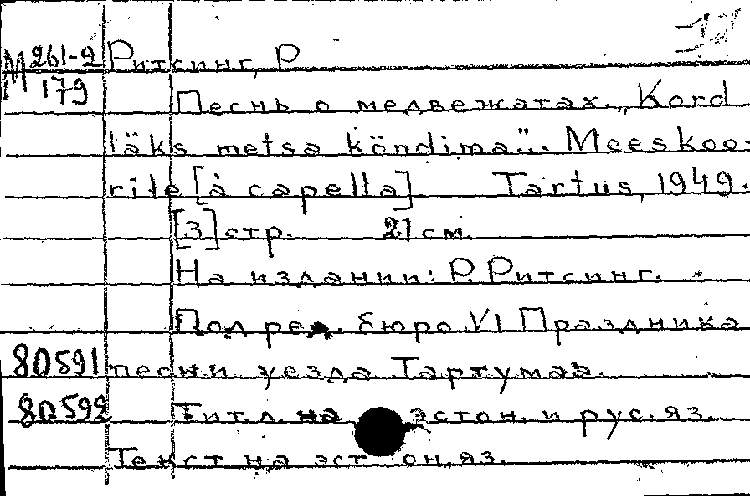 М 261-2 Ритсинг, Р
179
Песнь о медвежатах. „Kord
läks metsa köndima". Meeskoo-
rile [à capella] Tartus, 1949.
[3] стр. 21 см.
На издании: Р. Ритсинг.
Под ред. бюро VI Праздника
80591 песни уезда Тартумаа.
80592 Тит. л. на эстон. и рус. яз.
Текст на эстон. яз.